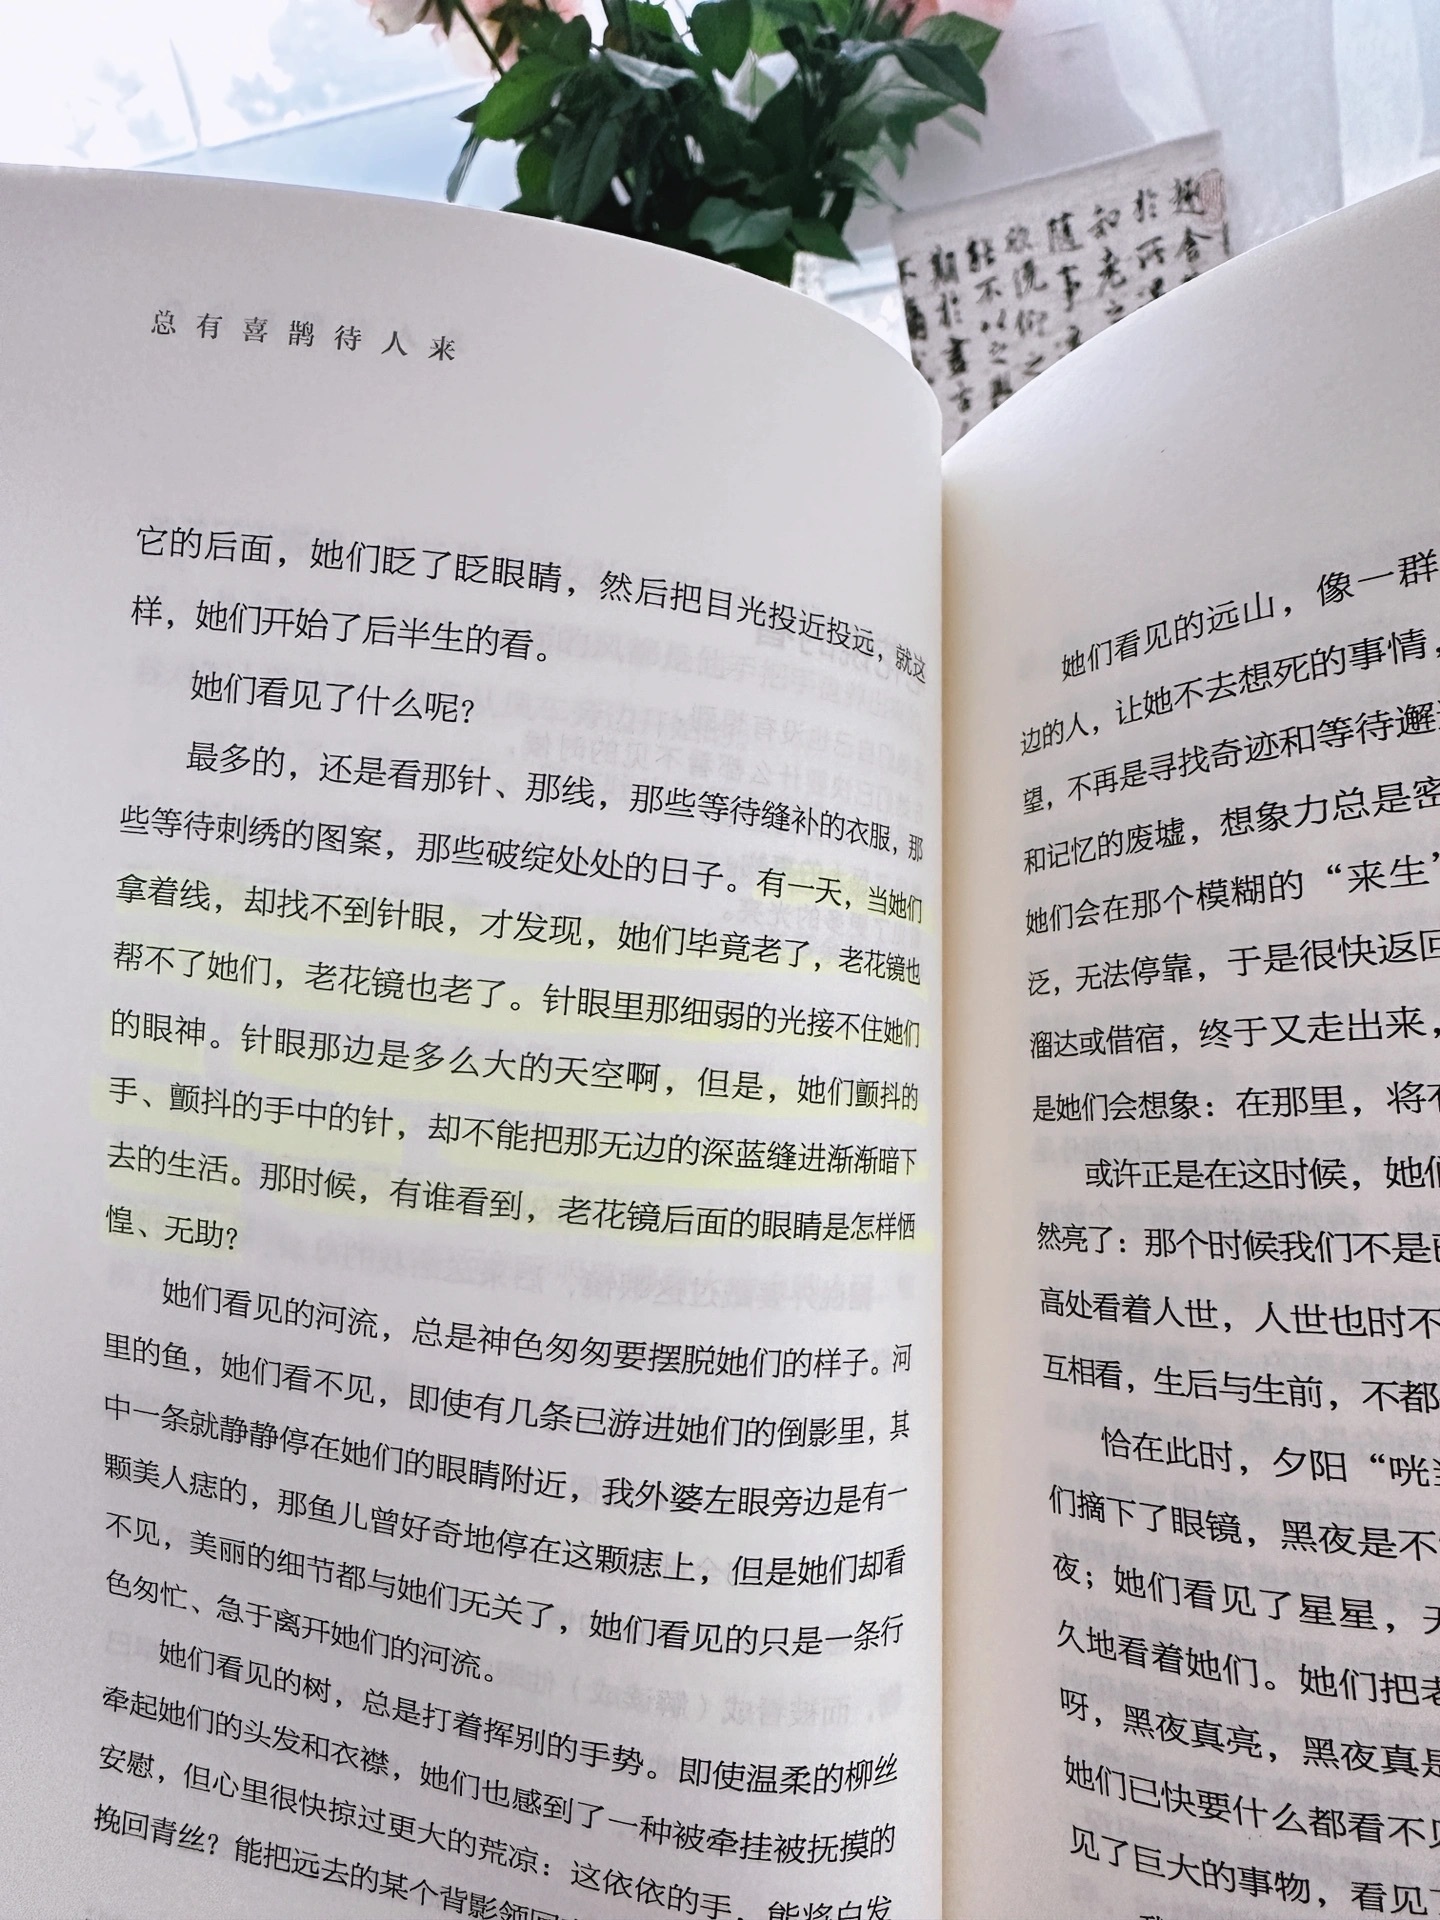 总有喜鹊待人来
它的后面，她们眨了眨眼睛，然后把目光投近投远，就这
样，她们开始了后半生的看。
她们看见了什么呢？
最多的，还是看那针、那线，那些等待缝补的衣服，那
些等待刺绣的图案，那些破绽处处的日子。有一天，当她们
拿着线，却找不到针眼，才发现，她们毕竟老了，老花镜也
帮不了她们，老花镜也老了。针眼里那细弱的光接不住她们
的眼神。针眼那边是多么大的天空啊，但是，她们颤抖的
手、颤抖的手中的针，却不能把那无边的深蓝缝进渐渐暗下
去的生活。那时候，有谁看到，老花镜后面的眼睛是怎样恓
惶、无助？
她们看见的河流，总是神色匆匆要摆脱她们的样子。河
里的鱼，她们看不见，即使有几条已游进她们的倒影里，其
中一条就静静停在她们的眼睛附近，我外婆左眼旁边是有一
颗美人痣的，那鱼儿曾好奇地停在这颗痣上，但是她们却看
不见，美丽的细节都与她们无关了，她们看见的只是一条行
色匆忙、急于离开她们的河流。
她们看见的树，总是打着挥别的手势。即使温柔的柳丝
牵起她们的头发和衣襟，她们也感到了一种被牵挂被抚摸的
安慰，但心里很快掠过更大的荒凉：这依依的手，能将白发
挽回青丝？能把远去的某个背影领回
她们看见的远山，像一群
边的人，让她不去想死的事情，
望，不再是寻找奇迹和等待邂
和记忆的废墟，想象力总是密
她们会在那个模糊的“来生”
泛，无法停靠，于是很快返回
溜达或借宿，终于又走出来，
是她们会想象：在那里，将有
或许正是在这时候，她们
然亮了：那个时候我们不是已
高处看着人世，人世也时不
互相看，生后与生前，不都
恰在此时，夕阳“咣当
们摘下了眼镜，黑夜是不
夜；她们看见了星星，天
久地看着她们。她们把老
呀，黑夜真亮，黑夜真是
她们已快要什么都看不见
见了巨大的事物，看见了
不 期 能 欣 随 知 於 趣
於 不 俛 事 老 所 舍
盡 以 仰 之
古 之 之